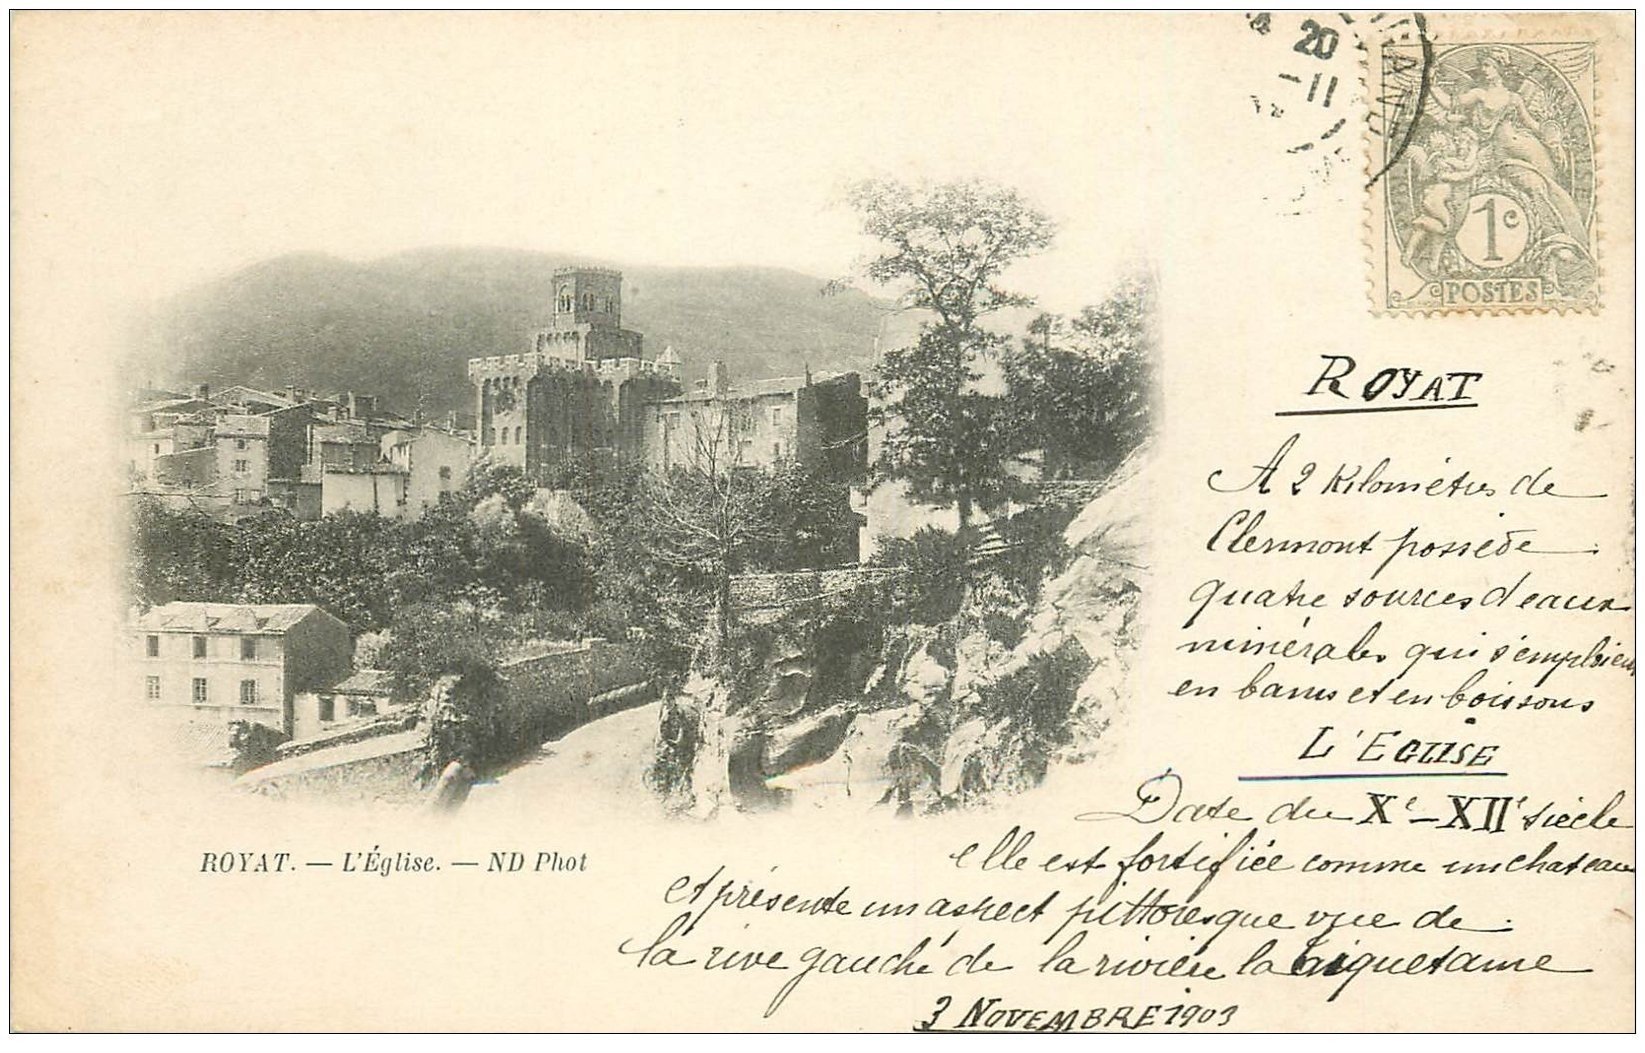 20
-11
1c
POSTES
ROYAT
A 2 Kilomètres de
Clermont possède
quatre sources d'eaux
minérales qui s'emploient
en bains et en boissons
L'EGLISE
Date du Xe-XIIe siècle
elle est fortifiée comme un chateau
et présente un aspect pittoresque vue de
la rive gauche de la rivière la
3 NOVEMBRE 1903
ROYAT. — L'Église. — ND Phot